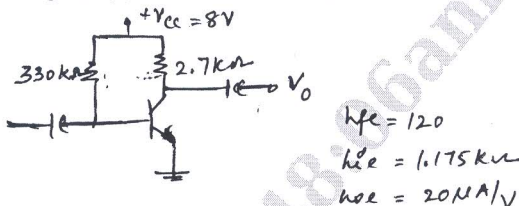 +Vcc = 8V
330kΩ
2.7kΩ
Vo
hfe = 120
hie = 1.175 kΩ
hoe = 20 μA/V